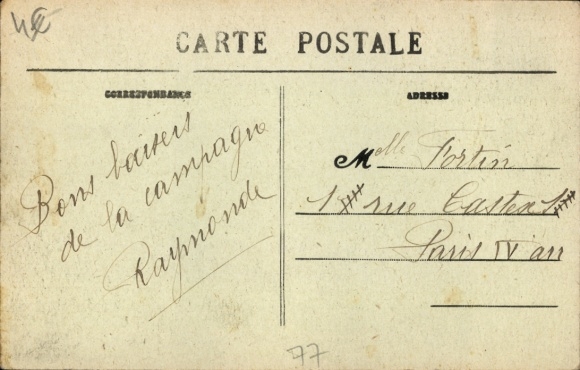 4€
CARTE POSTALE
CORRESPONDANCE
ADRESSE
Bons baisers
de la campagne
Raymonde
Melle Fortin
rue Castex
Paris IV arr
77